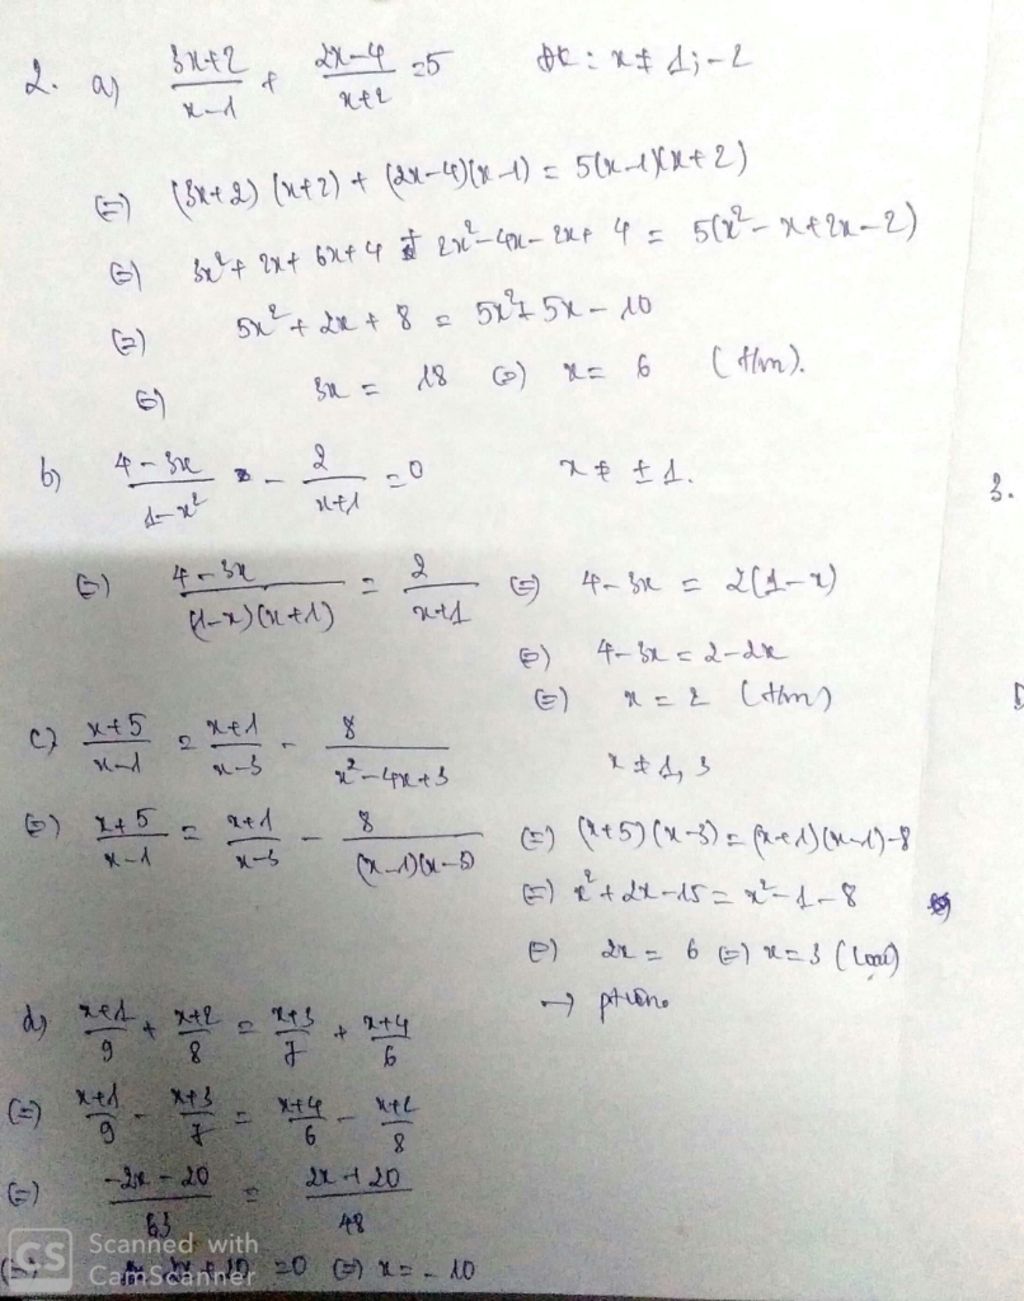 2. a) (3x+2)/(x-1) + (2x-4)/(x+2) = 5 đk: x ≠ 1; -2
⇔ (3x+2)(x+2) + (2x-4)(x-1) = 5(x-1)(x+2)
⇔ 3x² + 2x + 6x + 4 + 2x² - 4x - 2x + 4 = 5(x² - x + 2x - 2)
⇔ 5x² + 2x + 8 = 5x² + 5x - 10
⇔ 3x = 18 ⇔ x = 6 (tm).
b) (4-3x)/(1-x²) - 2/(x+1) = 0 x ≠ ±1.
3.
⇔ (4-3x)/((1-x)(x+1)) = 2/(x+1) ⇔ 4-3x = 2(1-x)
⇔ 4-3x = 2-2x
⇔ x = 2 (tm)
c) (x+5)/(x-1) = (x+1)/(x-3) - 8/(x²-4x+3) x ≠ 1, 3
⇔ (x+5)/(x-1) = (x+1)/(x-3) - 8/((x-1)(x-3)) ⇔ (x+5)(x-3) = (x+1)(x-1)-8
⇔ x² + 2x - 15 = x² - 1 - 8
⇔ 2x = 6 ⇔ x = 3 (loại)
→ ptvono
d) (x+1)/9 + (x+2)/8 = (x+3)/7 + (x+4)/6
⇔ (x+1)/9 - (x+3)/7 = (x+4)/6 - (x+2)/8
⇔ (-2x-20)/63 = (2x+20)/48
⇔ = 0 ⇔ x = -10
CS Scanned with
CamScanner